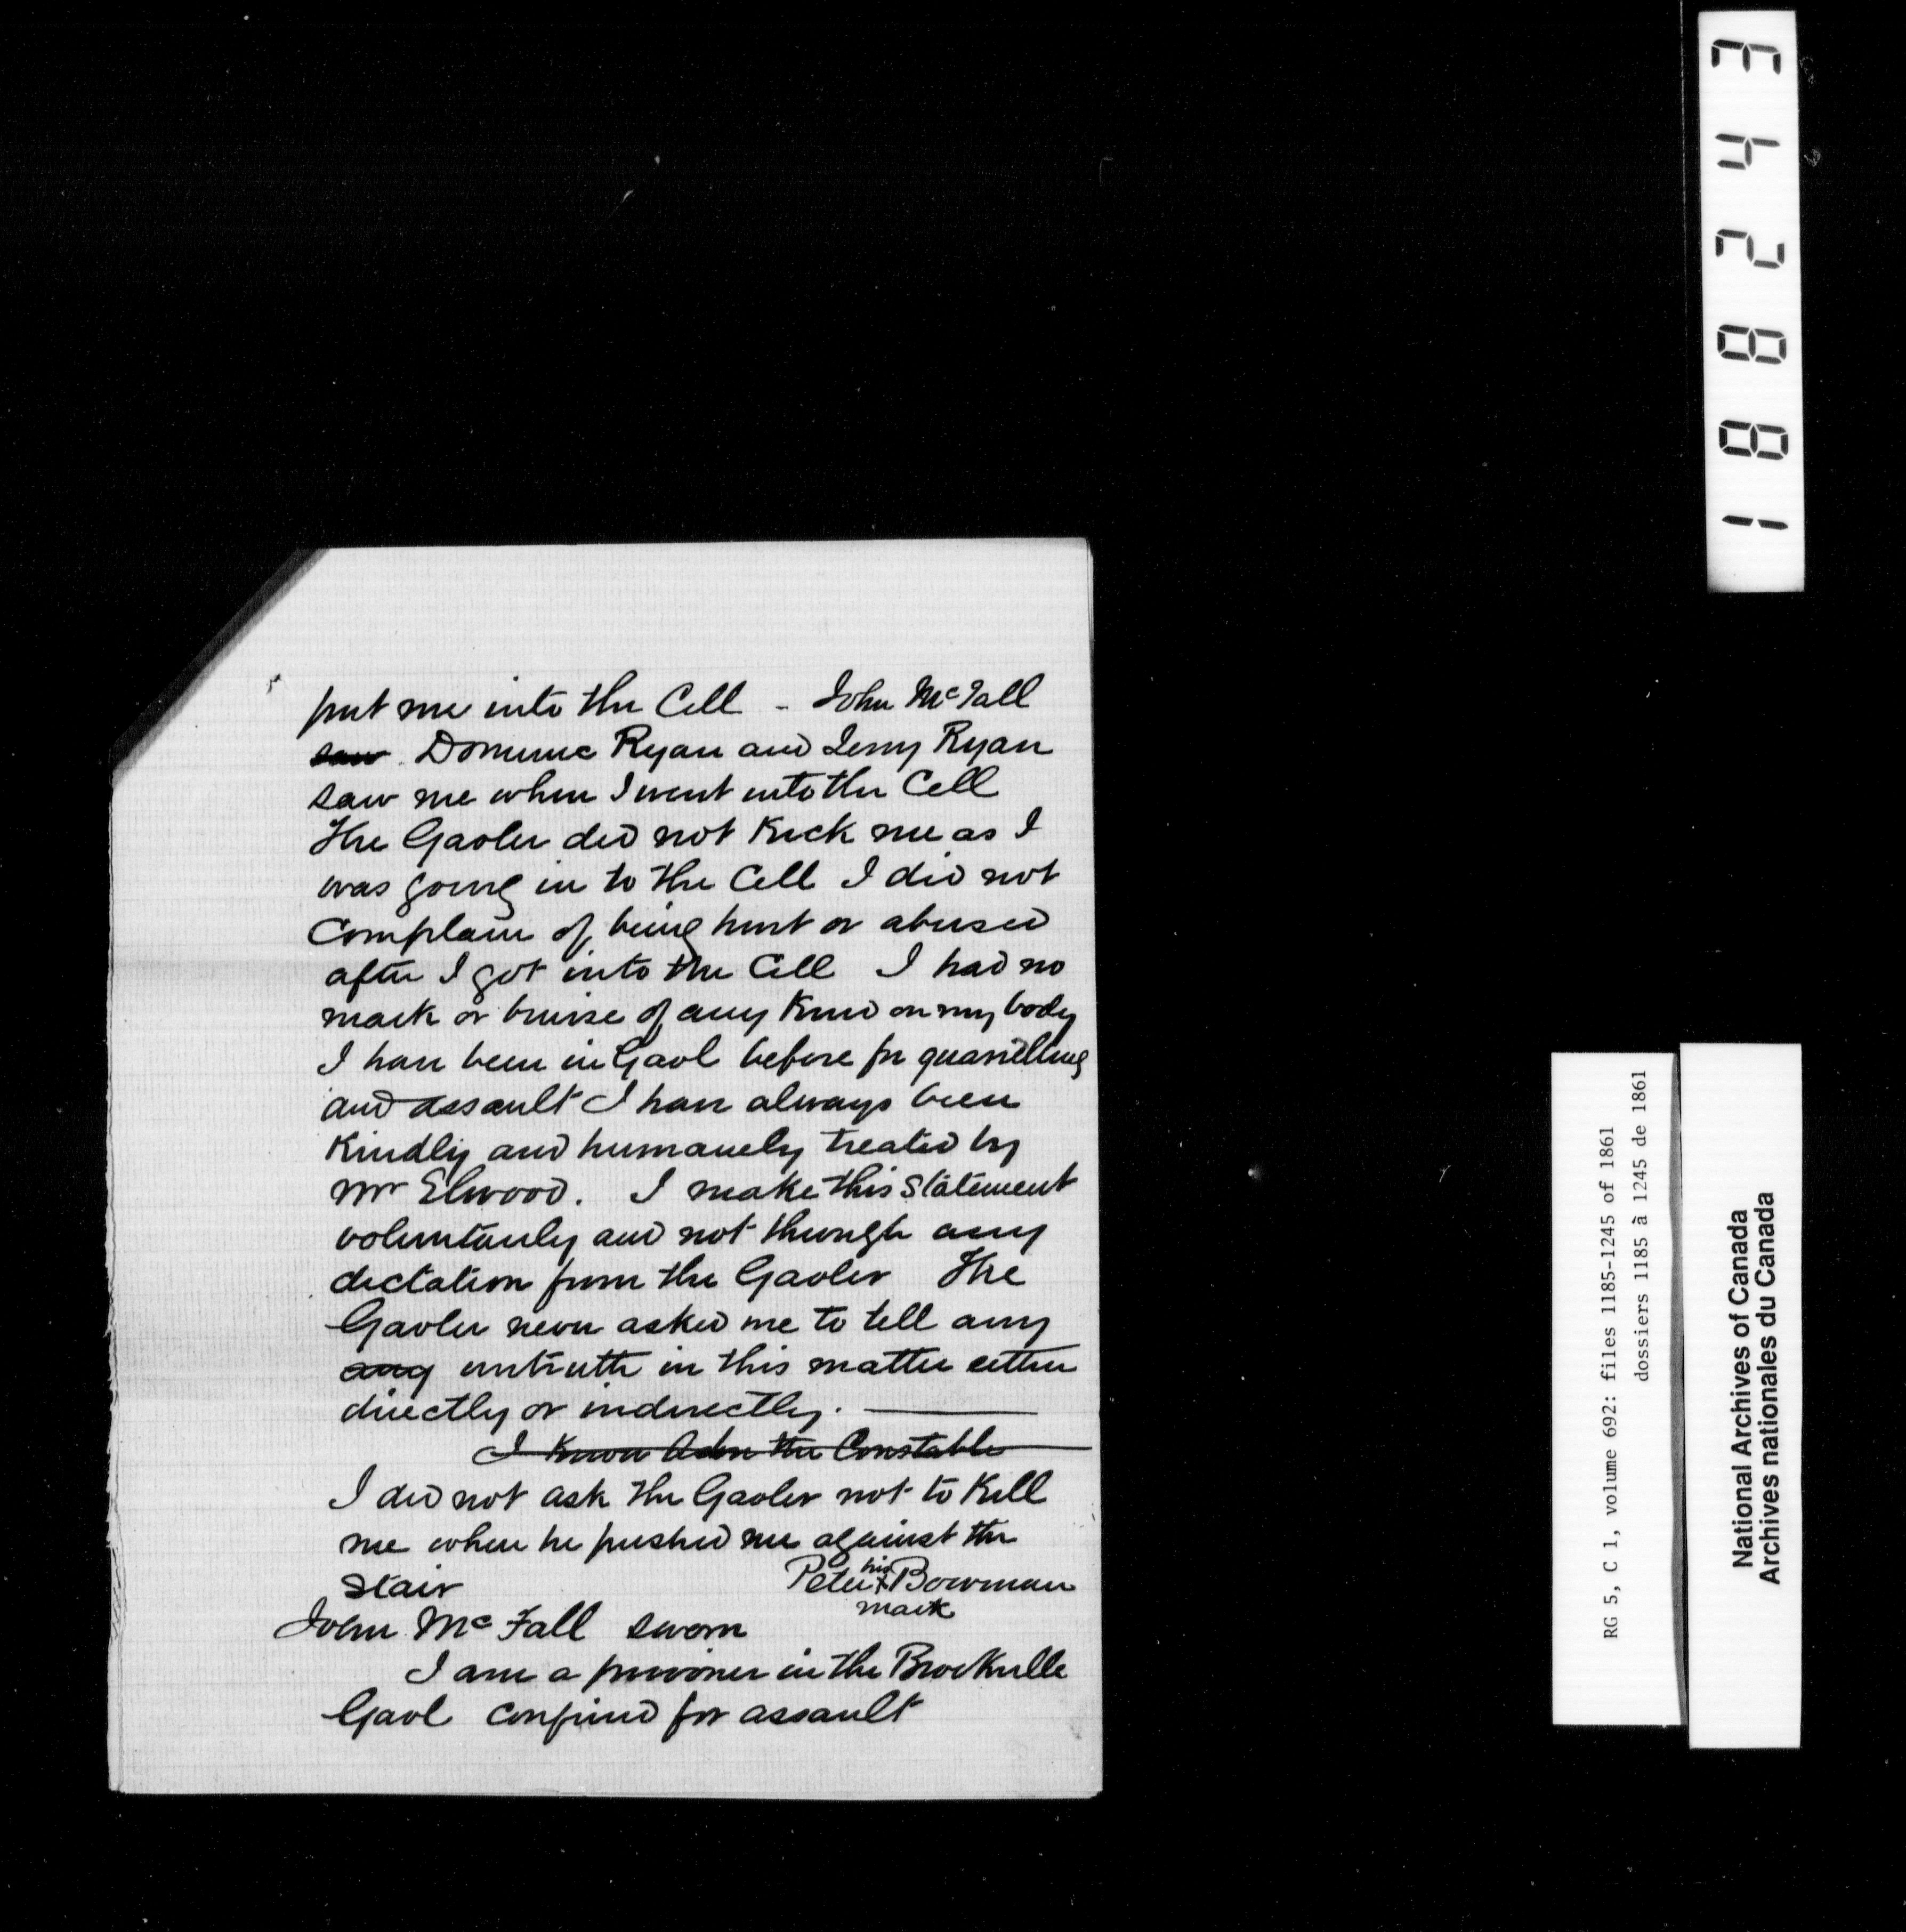 put me into the Cell - John McFall
saw Dominic Ryan and Jerry Ryan
saw me when I went into the Cell
The Gaoler did not Kick me as I
was going in to the Cell I did not
Complain of being hurt or abused
after I got into the Cell I had no
mark or bruise of any Kind on my body
I have been in Gaol before for quarrelling
and assault I have always been
Kindly and humanely treated by
Mr Elwood. I make this Statement
voluntarily and not through any
dictation from the Gaoler The
Gaoler never asked me to tell any
any untruth in this matter either
directly or indirectly.
I Know the Constable
I did not ask the Gaoler not to Kill
me when he pushed me against the
Stair Peter his x Bowman
mark
John McFall sworn
I am a prisoner in the Brockville
Gaol confined for assault
188243
RG 5, C 1, volume 692: files 1185-1245 of 1861
dossiers 1185 à 1245 de 1861
National Archives of Canada
Archives nationales du Canada